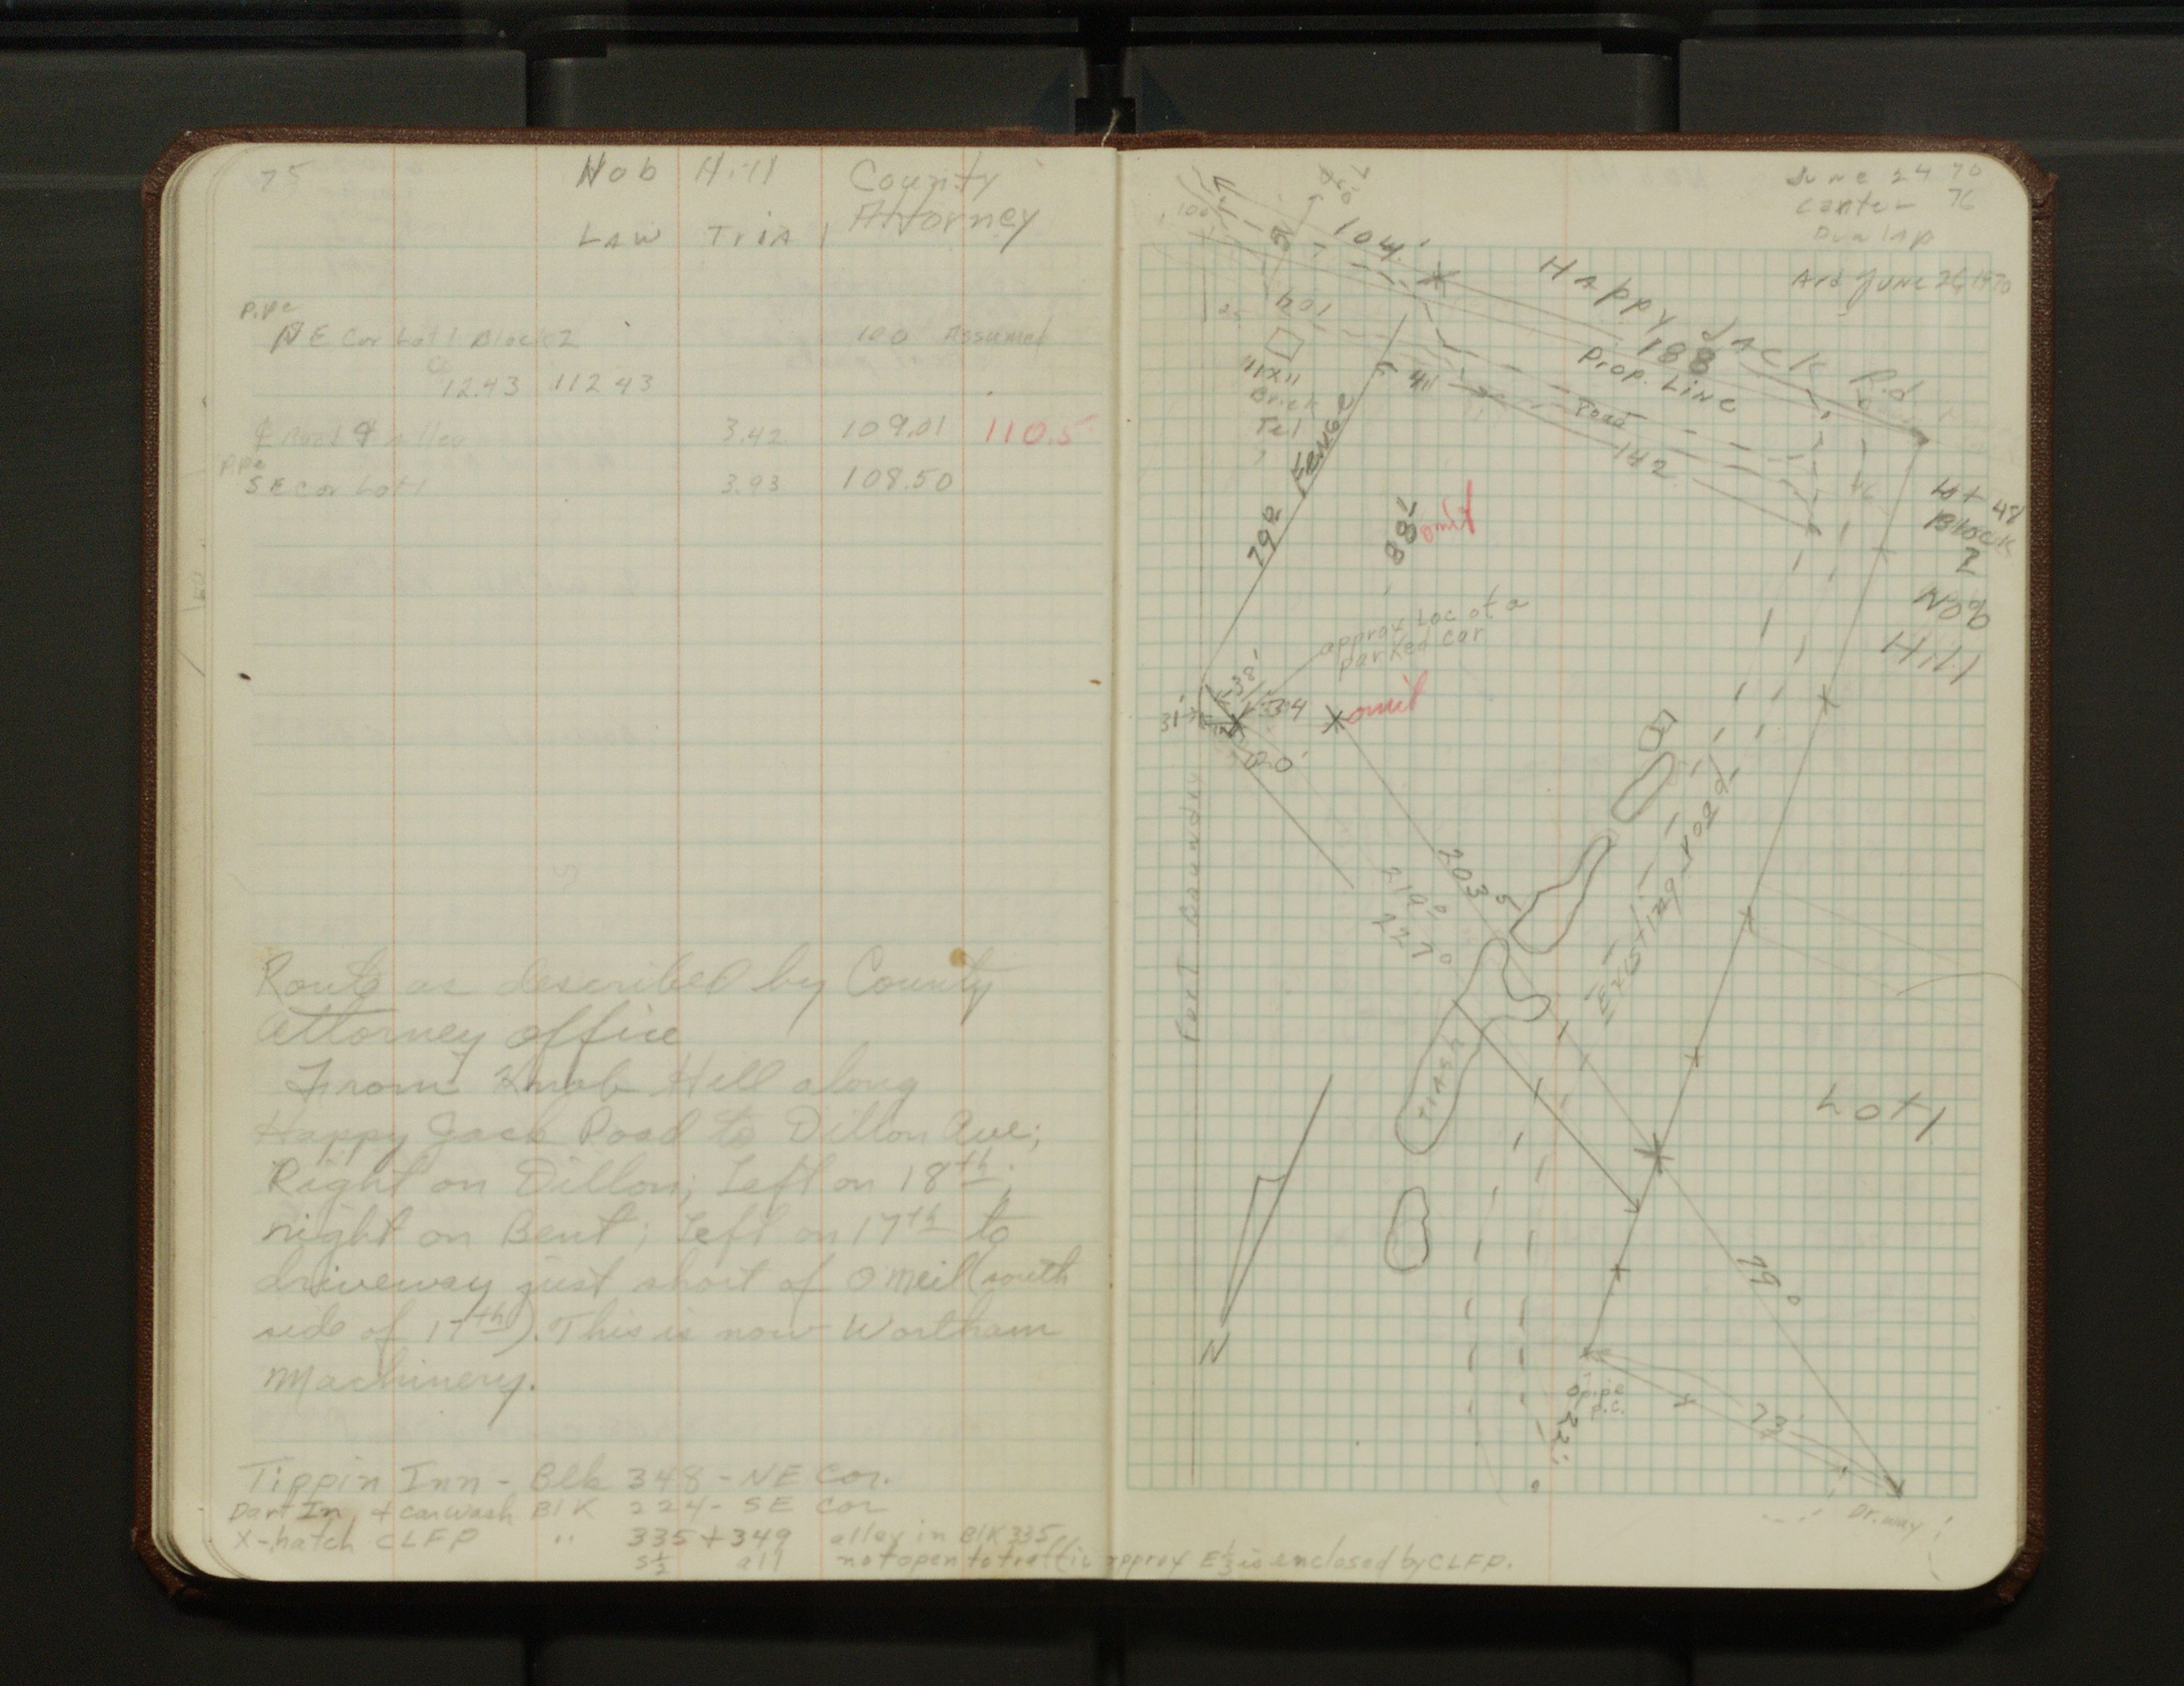 75
Nob Hill County
Attorney
Law Trial
Pipe
NE Cor Lot 1 Block 2 100 Assumed
12.43 112.43
℄ Road & Alley 3.42 109.01 110.5
Pipe
SE Cor Lot 1 3.93 108.50
Route as described by County
Attorney office
From Knob Hill along
Happy Jack Road to Dillon Ave;
Right on Dillon; Left on 18th;
right on Bent; Left on 17th to
driveway just short of O'Neil (south
side of 17th). This is now Wortham
Machinery.
Tippin Inn - Blk 348 - NE Cor.
Dart In + carwash Blk 224 - SE Cor
X-hatch CLFP " 335 + 349 alley in Blk 335
S½ all not open to traffic approx E½ is enclosed by CLFP.
June 24 70
76
Dunlap
And June 26, 1970
100
104'
Happy Jack Rd
188
Prop. Line
Road
142
104
11x11
Brick
Tel
41
Fence
292
188
omit
Lot 48
Block
2
Nob
Hill
approx Loc of a
parked car
38'
31'
394
20'
omit
Fort Boundry
203 5
210°
227°
Existing road
Trash
Lot 1
N
19°
pipe
p.c.
73'
22'
Dr. way